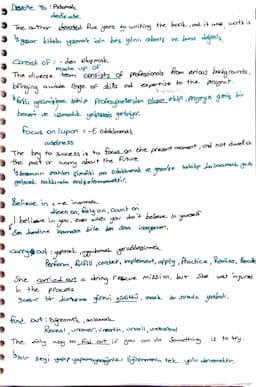 Devote to: Adamak
dedicate
The author devoted five years to writing the book, and it was worth it
Yazar kitabı yazmak için beş yılını adadı ve buna değdi.
Consist of: -den oluşmak
made up of
The diverse team consists of professionals from various backgrounds,
bringing a wide range of skills and expertise to the project.
Farklı geçmişlere sahip profesyonellerden oluşan ekip, projeye geniş bir
beceri ve uzmanlık yelpazesi getiriyor.
Focus on/upon: -E odaklanmak
address
The key to success is to focus on the present moment, and not dwell on
the past or worry about the future
Believe in: -e inanmak
rely on, count on
I believe in you, even when you don't believe in yourself
Sen kendine inanmasan bile ben sana inanıyorum.
carry out: yapmak, uygulamak, gerçekleştirmek
Perform, fulfill, conduct, implement, apply, Practice, Realise, Execute
She carried out a daring rescue mission, but she was injured
in the process
find out: Öğrenmek, anlamak
Reveal, uncover, unearth, unveil, understand
The only way to find out if you can do something is to try.
Bir şeyi yapıp yapamayacağınızı öğrenmenin tek yolu denemektir.